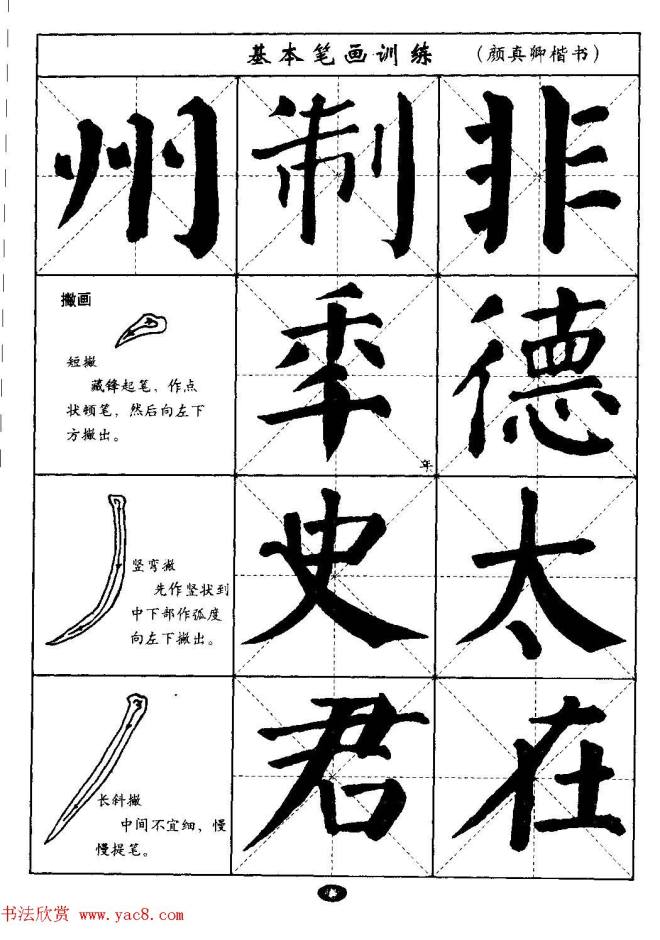 基本笔画训练 （颜真卿楷书）
州 制 非
撇画
短撇
藏锋起笔，作点
状顿笔，然后向左下
方撇出。
秊 德
年
竖弯撇
先作竖状到
中下部作弧度
向左下撇出。
史 太
长斜撇
中间不宜细，慢
慢提笔。
君 在
书法欣赏 www.yac8.com